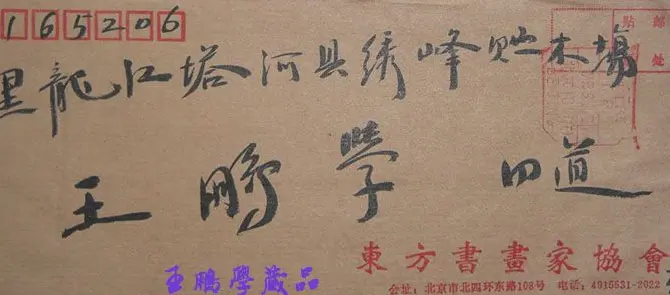 165206
黑龍江塔河县绣峰贮木場
王鹏學 同道
東方書畫家協會
会址：北京市北四环东路108号 电话：4915531-2022
王鵬學藏品
貼郵
处票